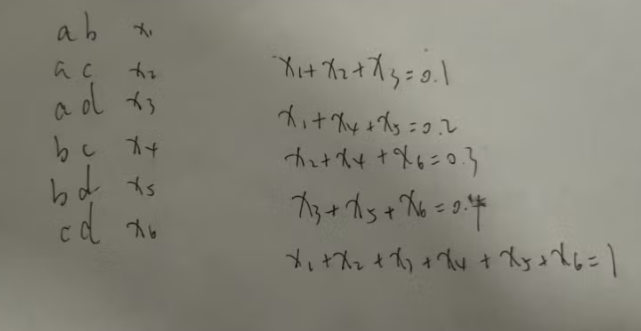 ab x₁
ac x₂
ad x₃
bc x₄
bd x₅
cd x₆
x₁+x₂+x₃=0.1
x₁+x₄+x₅=0.2
x₂+x₄+x₆=0.3
x₃+x₅+x₆=0.4
x₁+x₂+x₃+x₄+x₅+x₆=1